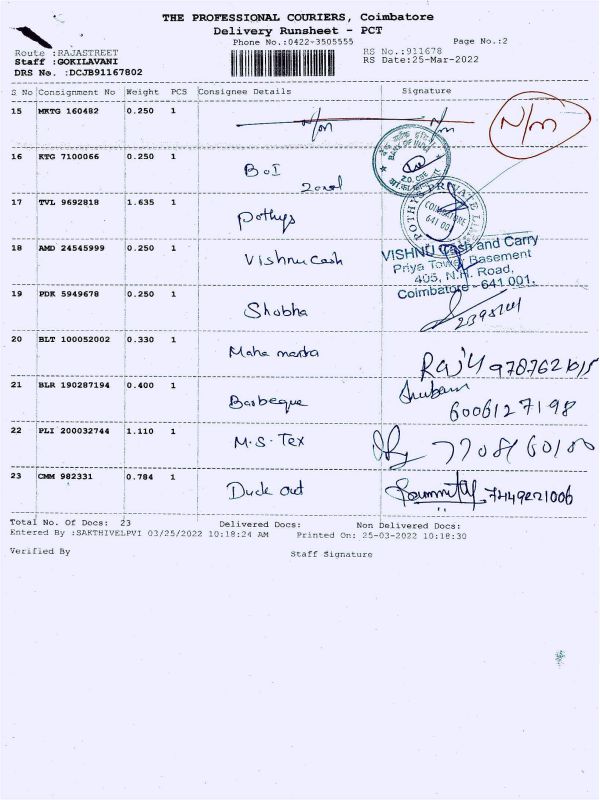 THE PROFESSIONAL COURIERS, Coimbatore
Delivery Runsheet - PCT
Phone No.:0422-3505555 Page No.:2
Route :RAJASTREET RS No.:911678
Staff :GOKILAVANI RS Date:25-Mar-2022
DRS No. :DCJB91167802
S No Consignment No Weight PCS Consignee Details Signature
15 MKTG 160482 0.250 1 N/m N/m N/m
16 KTG 7100066 0.250 1 BOI
BANK OF INDIA
17 TVL 9692818 1.635 1 Pothys
POTHYS PRIVATE
COIMBATORE
641 001
18 AMD 24545999 0.250 1 Vishnu Cash
VISHNU Cash and Carry
Priya Tower Basement
405, N.H. Road,
Coimbatore - 641 001.
19 PDK 5949678 0.250 1 Shobha
20 BLT 100052002 0.330 1 Maha
21 BLR 190287194 0.400 1 Barbeque Shubam
6006127198
22 PLI 200032744 1.110 1 M.S. Tex
23 CMM 982331 0.784 1 Duck out
Total No. Of Docs: 23 Delivered Docs: Non Delivered Docs:
Entered By :SAKTHIVELPVI 03/25/2022 10:18:24 AM Printed On: 25-03-2022 10:18:30
Verified By Staff Signature